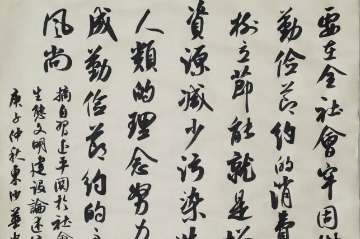 要在全社會牢固
勤儉節約的消費
樹立節能就是增
資源減少污染造
人類的理念努力
成勤儉節約的
風尚
摘自習近平關於社會
生態文明建設論述
庚子仲秋東沙